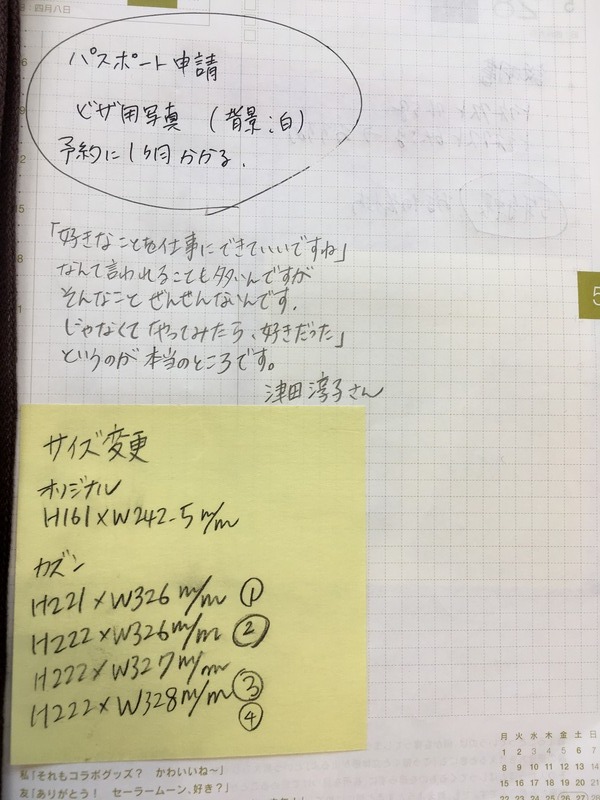 四月八日
パスポート申請
ビザ用写真 (背景:白)
予約に1ヶ月かかる.
「好きなことを仕事にできていいですね」
なんて言われることも多いんですが
そんなこと ぜんぜんないんです.
じゃなくて「やってみたら、好きだった」
というのが本当のところです。
津田淳子さん
サイズ変更
オリジナル
H161×W242.5 m/m
カズン
H221×W326 m/m ①
H222×W326 m/m ②
H222×W327 m/m
H222×W328 m/m ③
④
5
月 火 水 木 金 土 日
1 2 3 4 5 6 7
8 9 10 11 12 13 14
15 16 17 18 19 20 21
22 23 24 25 26 27 28
私「それもコラボグッズ? かわいいね〜」
友「ありがとう! セーラームーン、好き?」